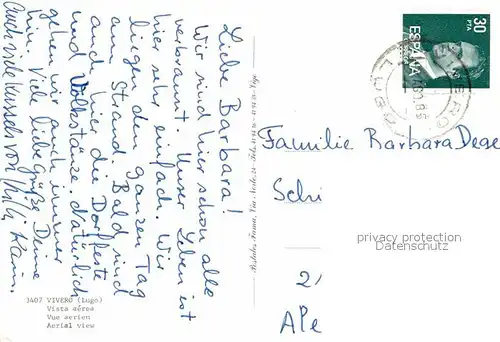 Liebe Barbara!
Wir sind hier schon alle
verbrannt. Unser Leben ist
hier sehr einfach. Wir
liegen den ganzen Tag
am Strand. Bald sind
auch hier die Dorffeste
und Volkstänze. Natürlich
gehen wir auch immer
hin. Viele liebe Grüße Deine
Karin.
Auch viele Küssels von
3407 VIVERO (Lugo)
Vista aérea
Vue aerien
Aerial view
30
PTA
ESPAÑA
Familie Barbara Dege
Schi
privacy protection
www.
2/
APe